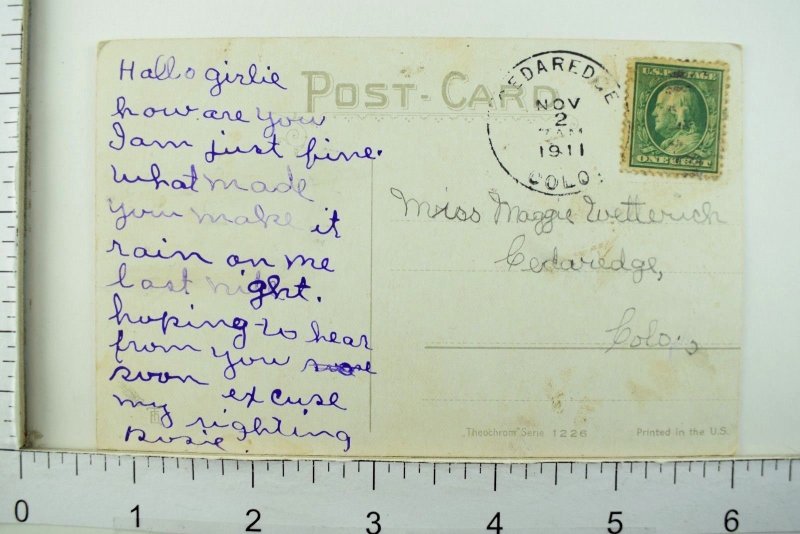 Hallo girlie
how are you
I am just fine.
What made
you make it
rain on me
last night.
hoping to hear
from you
soon excuse
my righting
Rosie.
POST-CARD
CEDAREDGE
NOV
2
7 AM
1911
COLO.
U.S. POSTAGE
ONE CENT
Miss Maggie Wetterich
Cedaredge,
Colo.
"Theochrom" Serie 1226
Printed in the U.S.
0 1 2 3 4 5 6